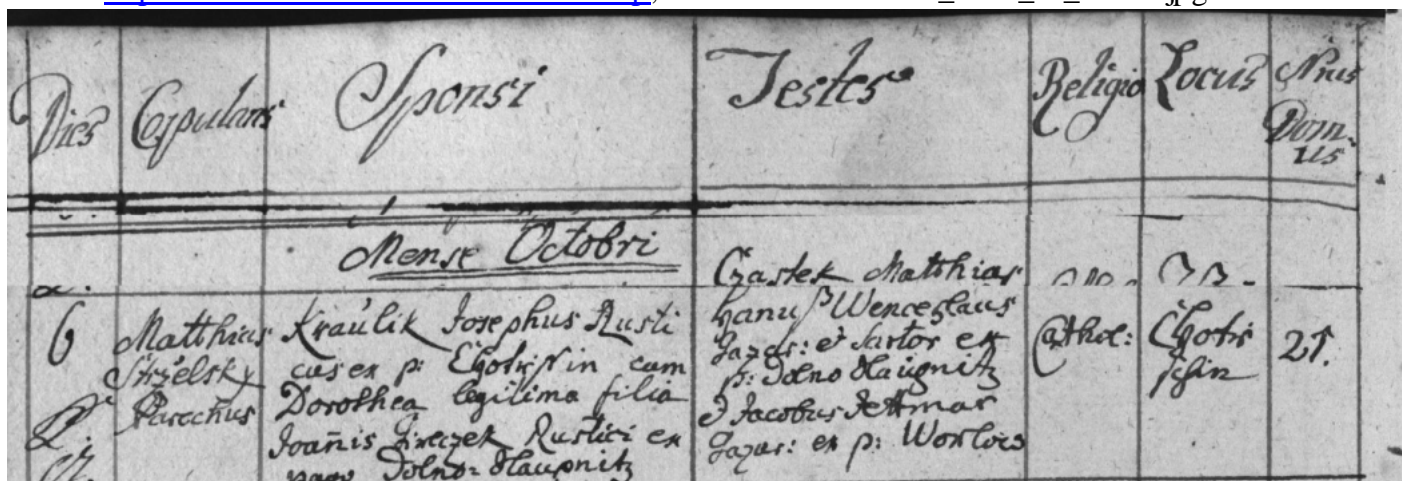 Dies Copulans Sponsi Testes Religio Locus Nrus
Domus
Mense Octobri
6
Matthias
Strzelsky
Parochus
Kraulik Josephus Rusti
cus ex p: Chotischin cum
Dorothea legitima filia
Joanis Rustici ex
pago Dolno
Czastek Matthias
Hanuß Wenceslaus
Gazar: et Sartor ex
p: Dolno
et Jacobus Jettmar
Gazar: ex p: Worlow
Cathol:
Choti
schin
21.